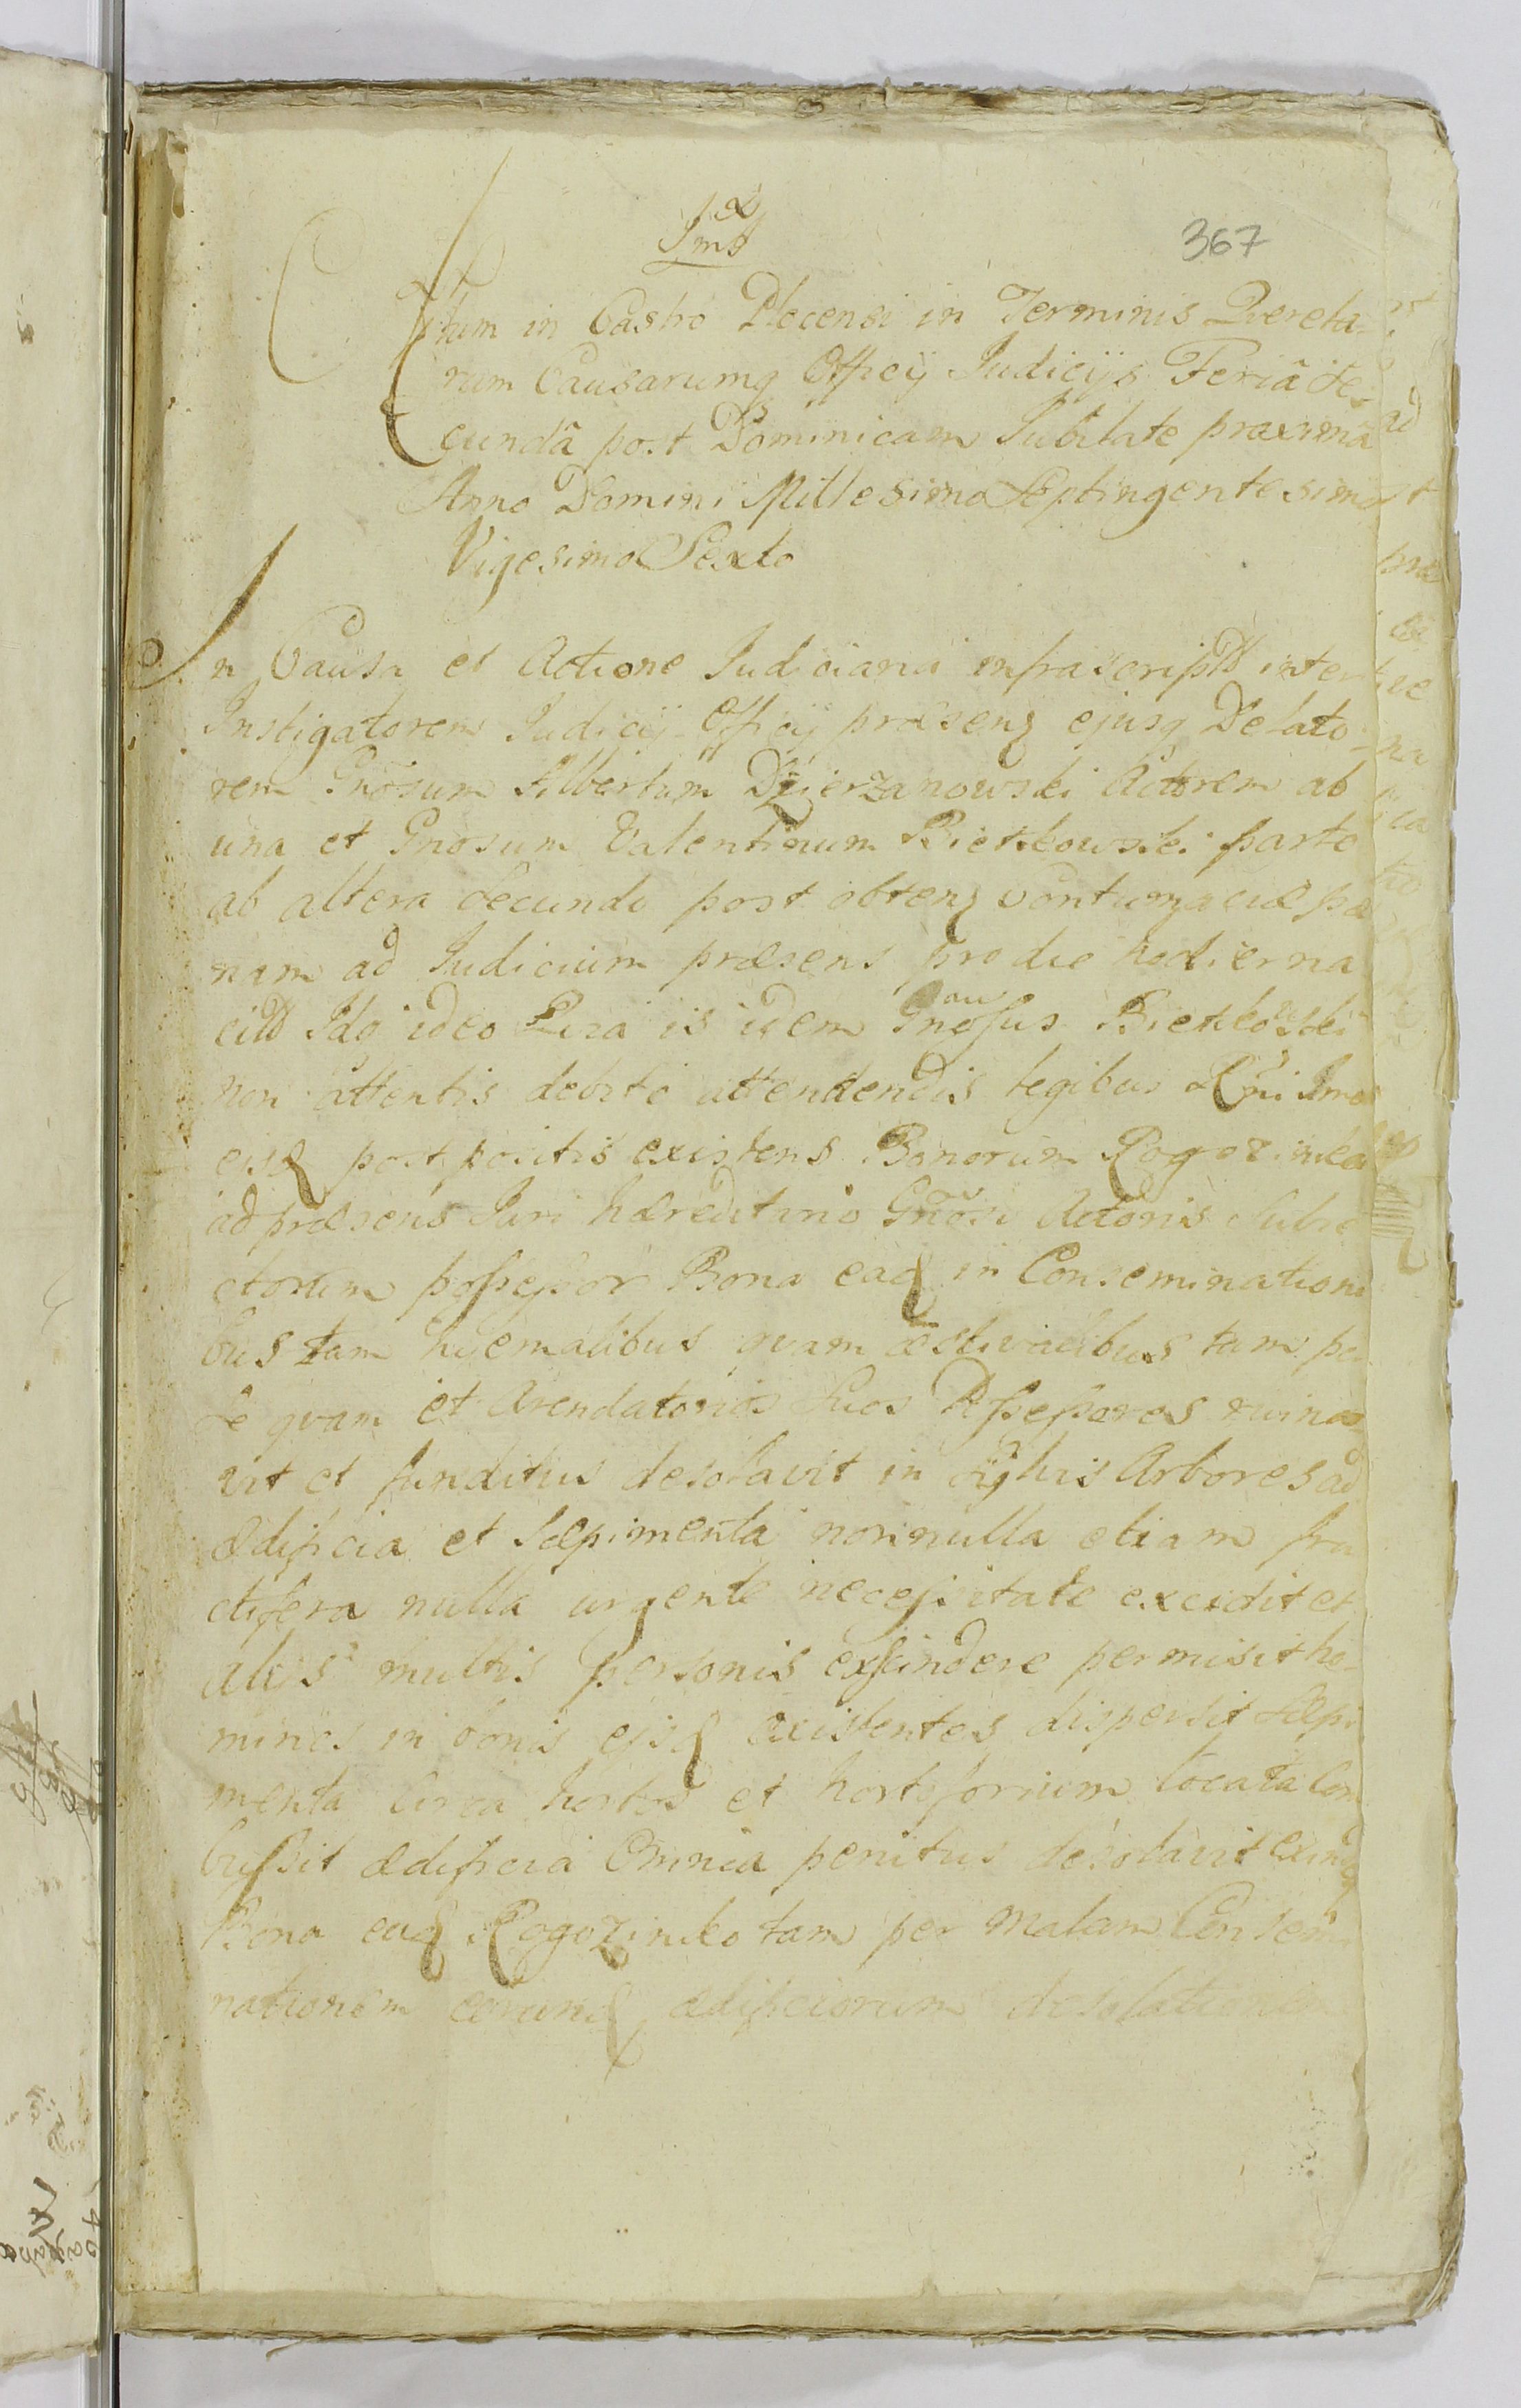 367
Actum in Castro Plocensi in Terminis Qverela-
rum Causarumq Officij Judicijs Feriâ se-
cundâ post Dominicam Jubilate proxima
Anno Domini Millesimo Septingentesimo
Vigesimo Sexto
In Causa et Actione Judiciaria infrascript inter
Instigatorem Judicij Officij præsenq ejusq Delato-
rem Gnosum Albertum Dzierzanowski Actorem ab
una et Gnosum Valentinum Bietkowski parte
ab altera secundo post obtenq contumaciæ pæ
nam ad Judicium præsens pro die hodierna
citt Ido ideo qvia is idem Gnosus Bietkowski
non attentis debite attendendis legibus Rgni
eisq post positis existens Bonorum Rogozinko
ad præsens Juri hæreditario Gnosi Actoris subie
ctorum possessor Bona eaq in Conseminationi
bus tam hyemalibus qvam æstivalibus tam per
se qvam et Arendatorios suos Possessores ruina
vit et funditus desolavit in Arbores ad
ædificia et sæpimenta nonnulla etiam fru
ctifera nulla urgente necessitate excidit et
alijs multis personis exscindere permisit ho-
mines in bonis ejsq existentes dispersit sæpi
menta circa hortos et locata com
bussit ædificia Omnia penitus desolavit exindeq
Bona eaq Rogozinko tam per malam Consemi
nationem eorunq ædificiorum desolationem